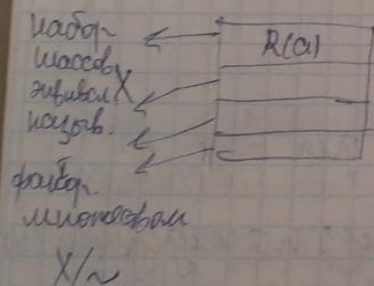 набор
классов
эквивал. X
назыв.
фактор.
множеством
X/~
R(a)